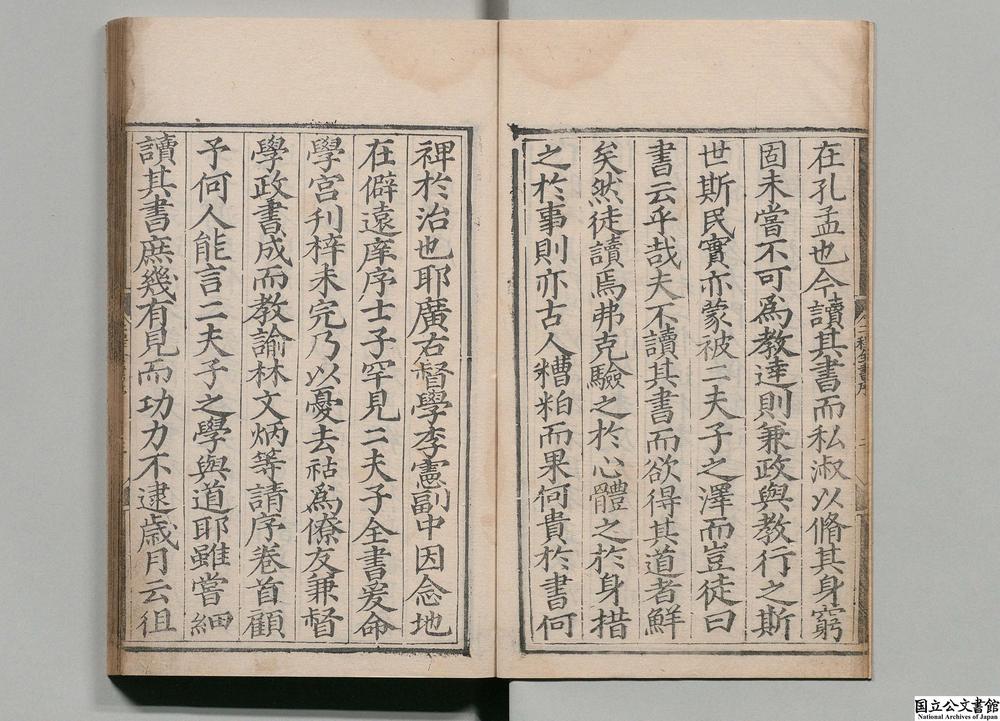 在孔孟也今讀其書而私淑以脩其身窮
固未嘗不可爲教達則兼政與教行之斯
世斯民實亦蒙被二夫子之澤而豈徒曰
書云乎哉夫不讀其書而欲得其道者鮮
矣然徒讀焉弗克驗之於心體之於身措
之於事則亦古人糟粕而果何貴於書何
裨於治也耶廣右督學李憲副中因念地
在僻遠庠序士子罕見二夫子全書爰命
學宮刋梓未完乃以憂去祜爲僚友兼督
學政書成而教諭林文炳等請序卷首顧
予何人能言二夫子之學與道耶雖嘗細
讀其書庶幾有見而功力不逮歲月云徂
国立公文書館
National Archives of Japan